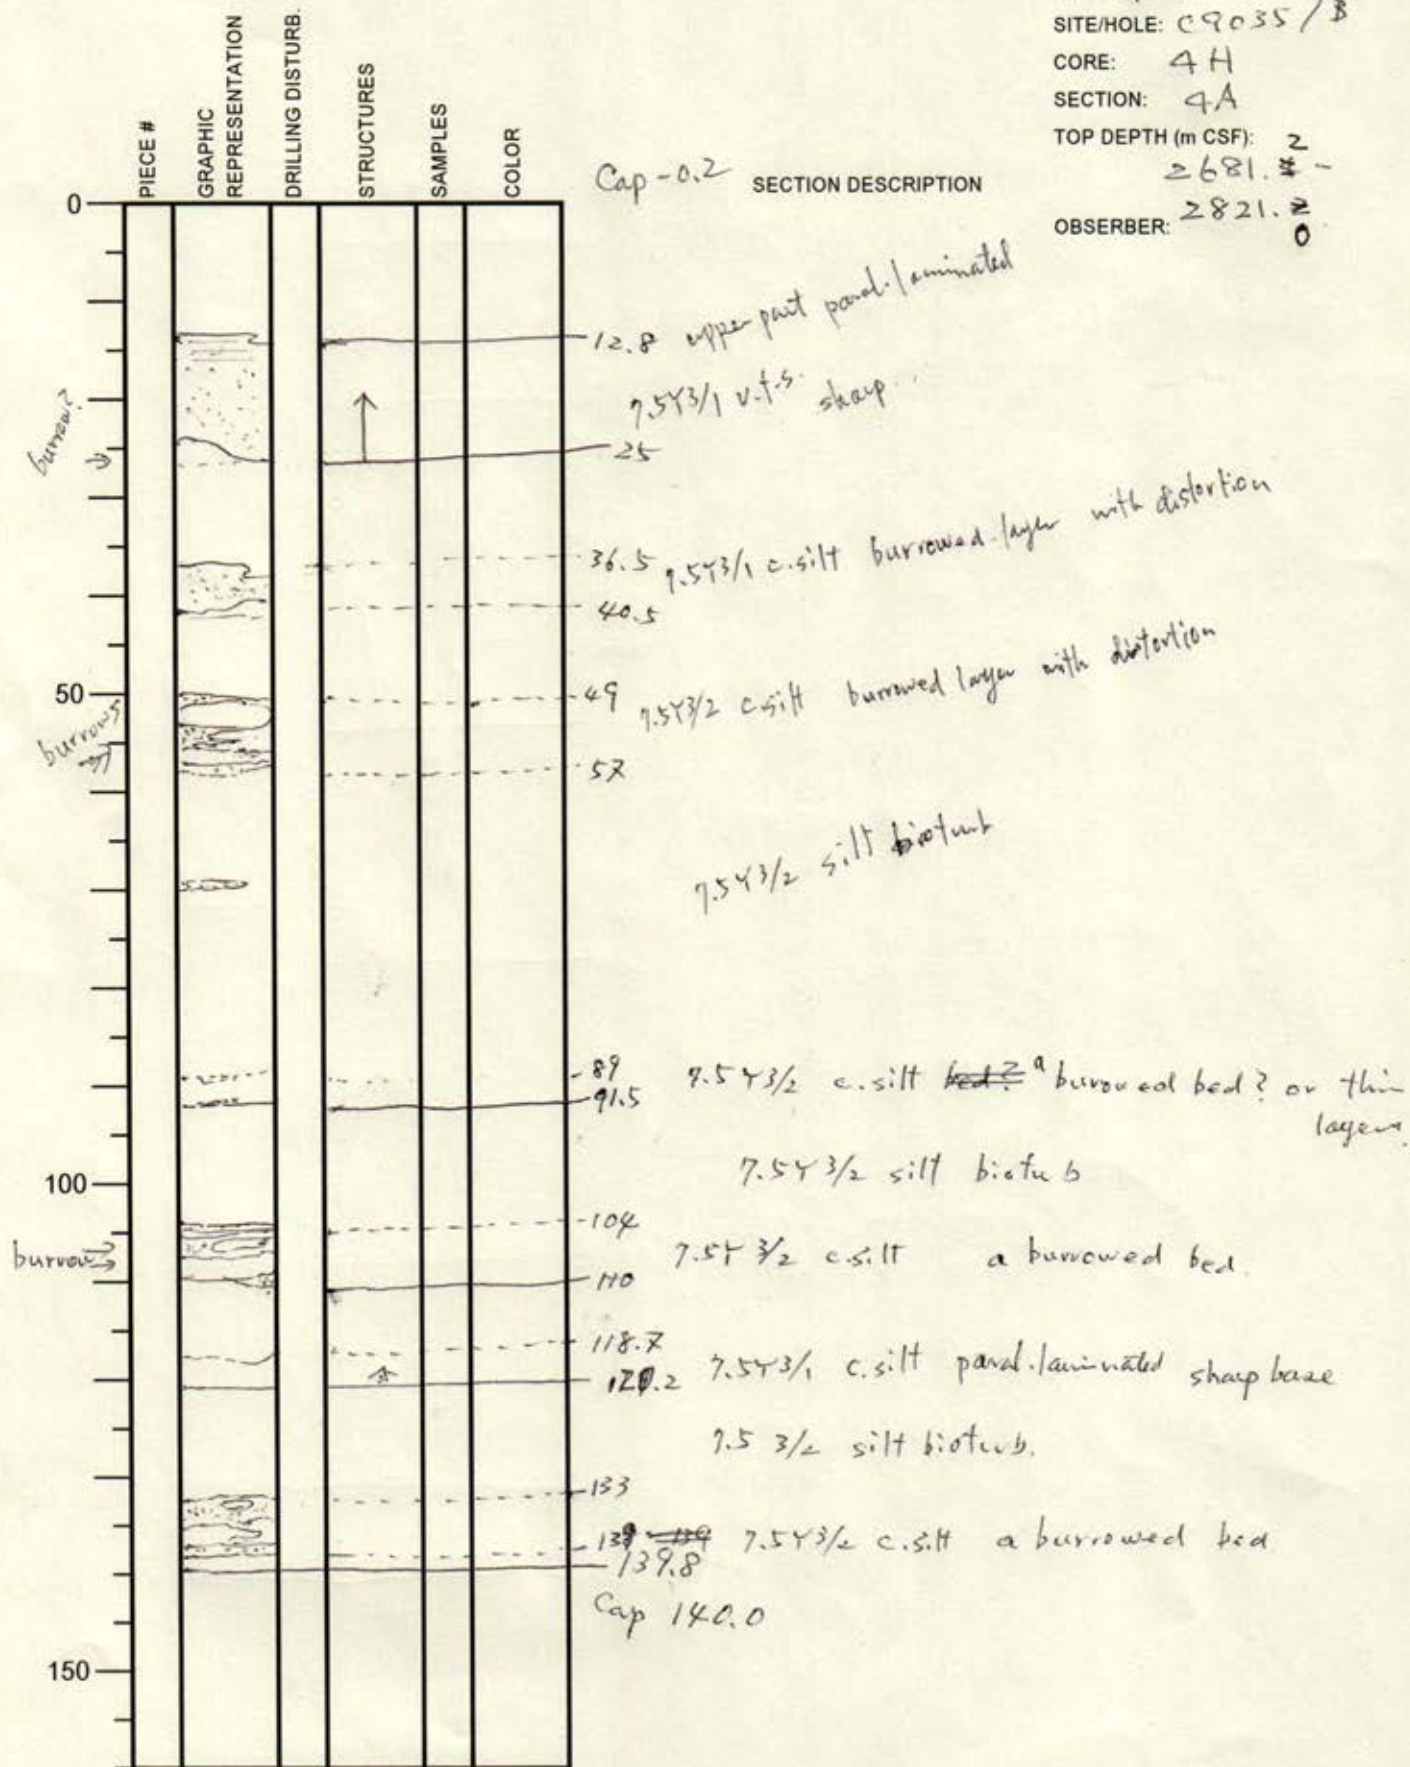 SITE/HOLE: C9035/B
CORE: 4H
SECTION: 4A
TOP DEPTH (m CSF): 2
2681. -
OBSERBER: 2821.
0
PIECE #
GRAPHIC REPRESENTATION
DRILLING DISTURB.
STRUCTURES
SAMPLES
COLOR
Cap -0.2 SECTION DESCRIPTION
0
12.8 upper part paral. laminated
7.5Y3/1 v.f.s. sharp
burrow?
25
36.5 7.5Y3/1 c.silt burrowed layer with distortion
40.5
50
49 7.5Y3/2 c.silt burrowed layer with distortion
burrows
57
7.5Y3/2 silt bioturb
89 7.5Y3/2 c.silt bed? a burowed bed? or thin
layer
91.5
100
7.5Y 3/2 silt biotub
104
burrow
7.5Y 3/2 c.silt a burrowed bed.
110
118.7
7.5Y3/1 c.silt paral. laminated sharp base
120.2
7.5 3/2 silt bioturb.
133
139 7.5Y3/2 c.silt a burrowed bed
139.8
Cap 140.0
150